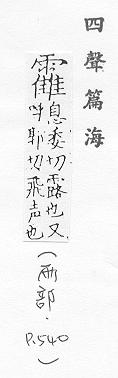 四聲篇海
靃息委切露也又
呼耶切飛声也
(雨部.
P.540)